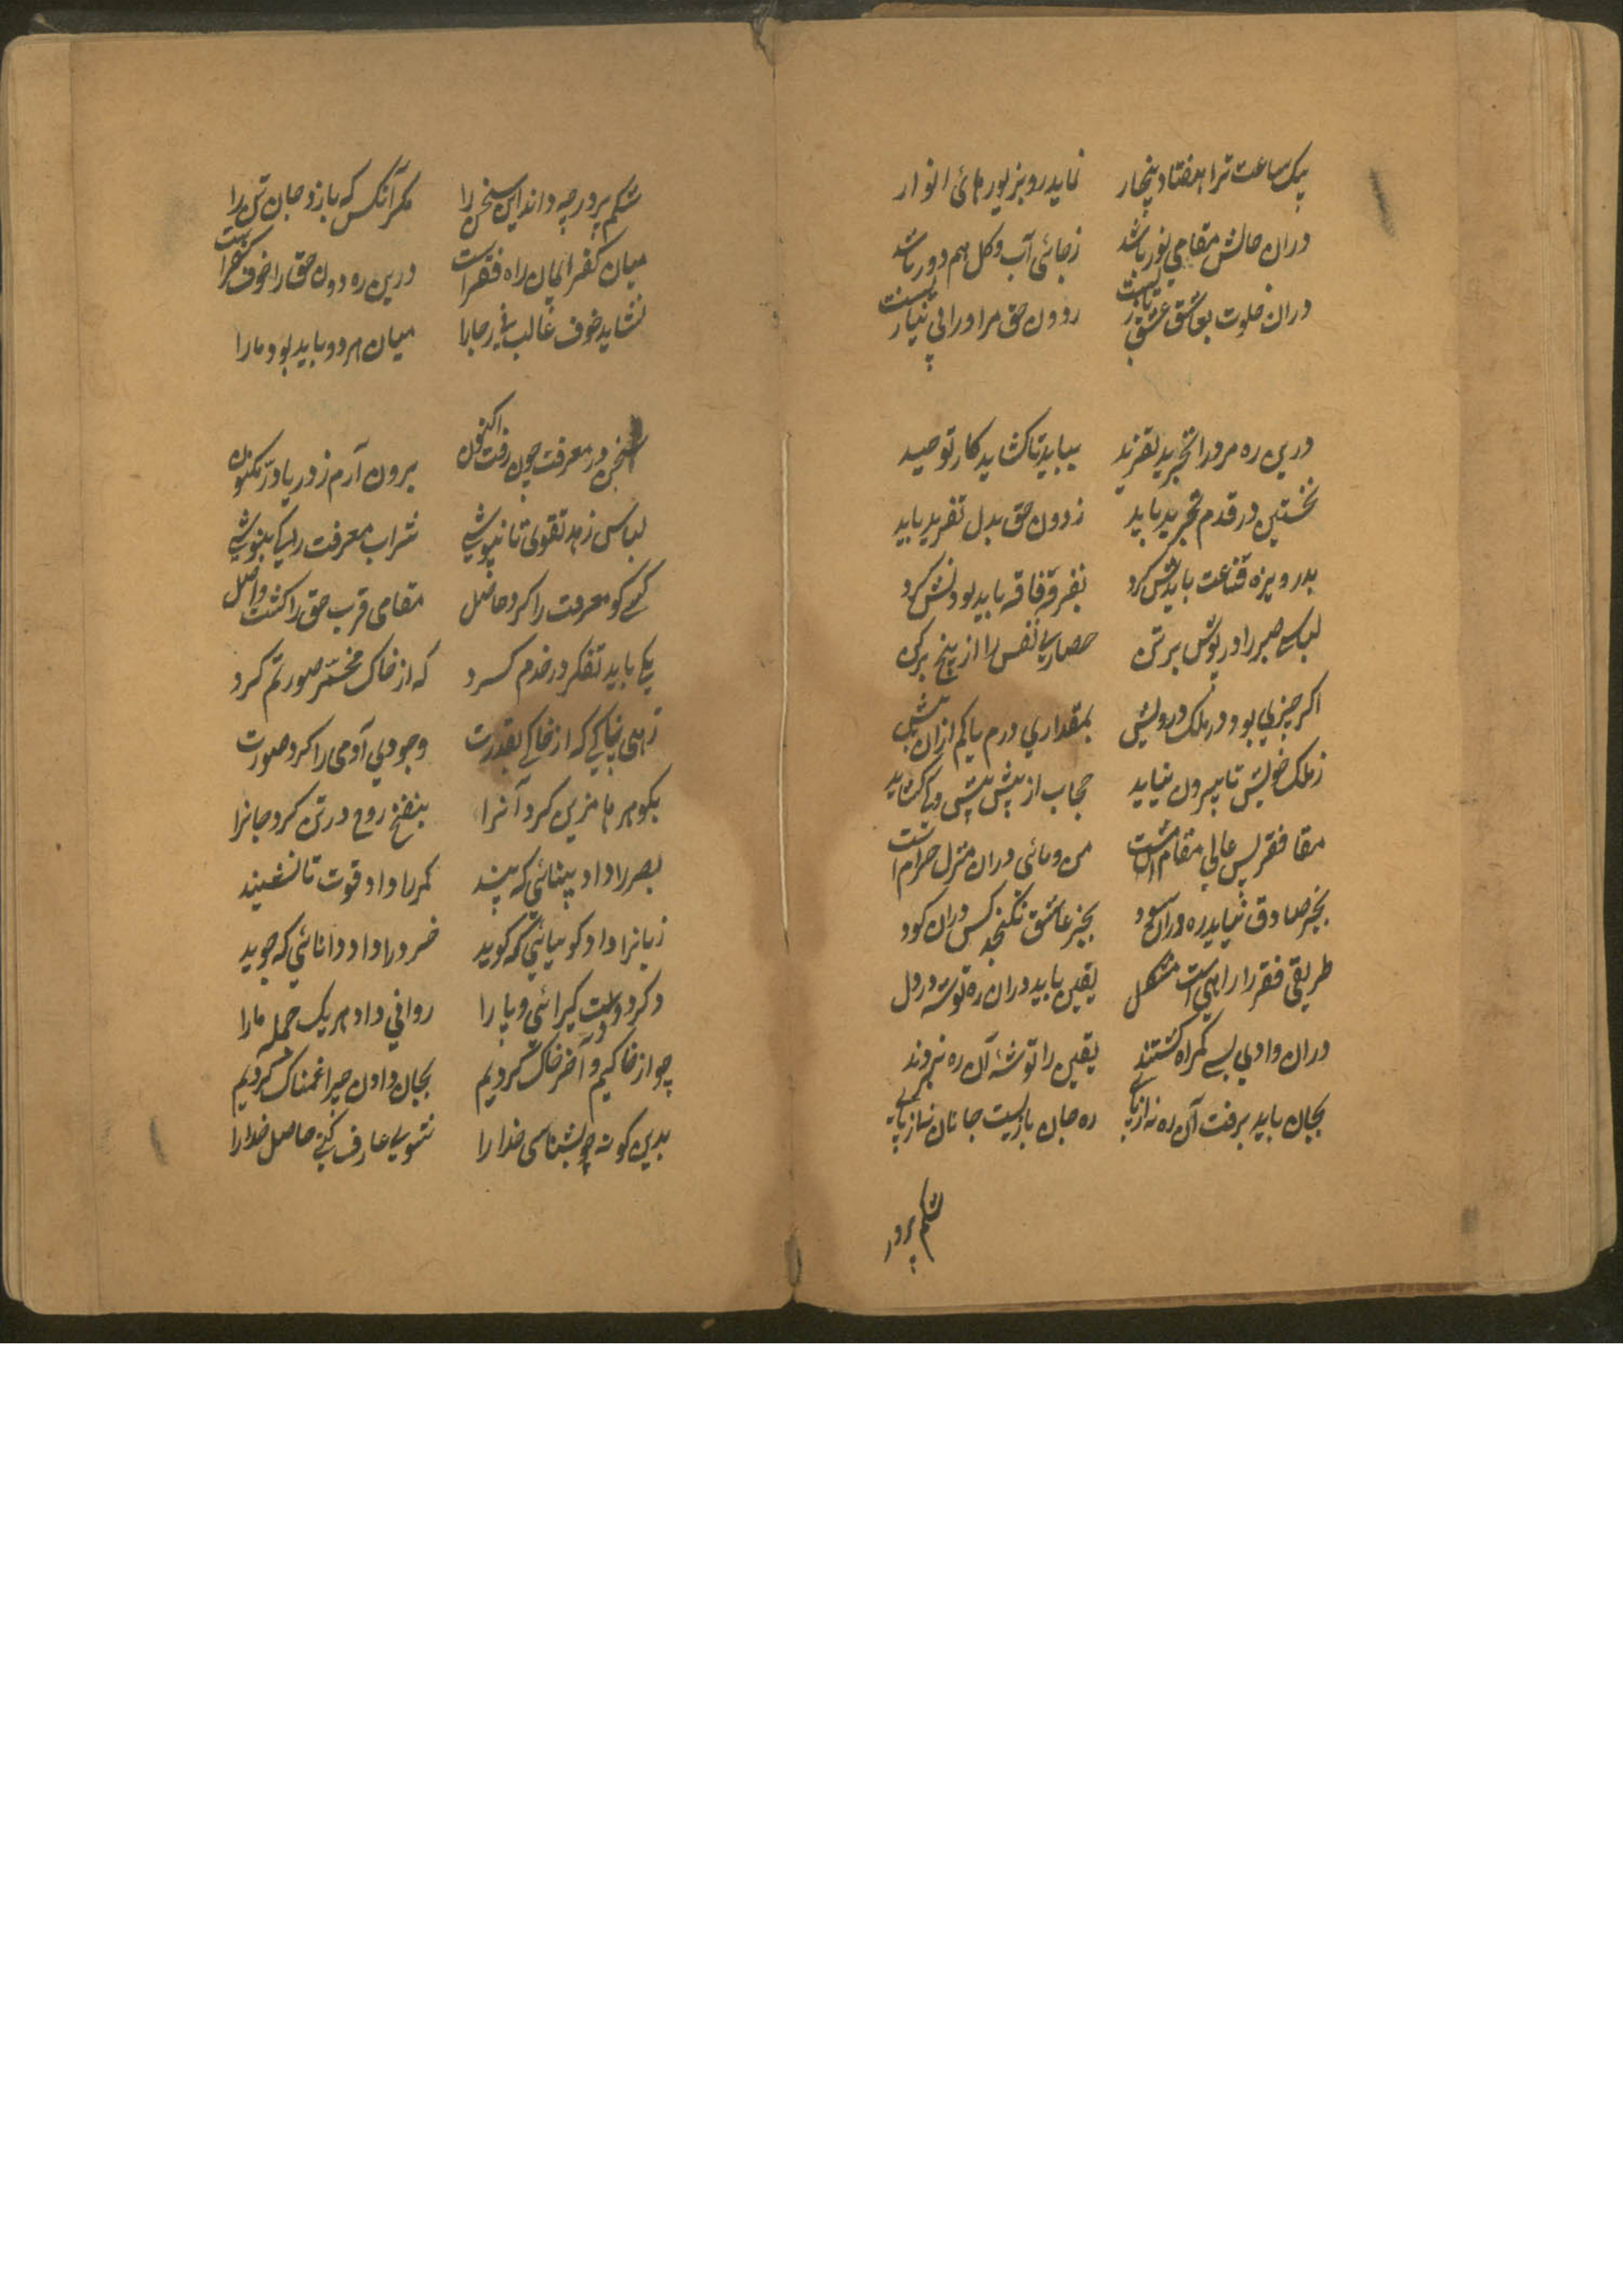 بیک ساعت ترا هفتاد پنجار نماید رو بزیورهائی انوار
دران حالش مقامی نور باشد ز جائی آب و گل هم دور باشد
دران خلوت بعاشق عشق بازیست ز دون حق مر او را بی نیازیست
درین ره مرد را تجرید تفرید بباید تا کشاید کار توحید
نخستین در قدم تجرید باید ز دون حق بدل تفرید باید
بدرویزه قناعت بایدش کرد بفرقه فاقه باید بودنش کرد
لباس صبر را در پوش بر تن حصاری نفس را از بیخ برکن
اکر چیزی بود در ملک درویش بمقداری درم یا کم ازان بیش
ز ملک خویش تا بیرون نیاید حجاب از پیش پیش وی کشاید
مقا فقر بس عالی مقام است من و مائی دران منزل حرام است
بجز صادق نیاید ره دران سود بجز عاشق نکنجد کس دران کود
طریقی فقر را راهی است مشکل یقین باید دران ره توشه در دل
دران وادی بسی کمراه کشتند یقین را توشهٔ آن ره نبردند
بجان باید برفت آن ره نه از پای ره جان بازیست جانان نه از پای
شکم پرور
شکم پرور چه داند این سخن را مکر آنکس که بازد جان تن را
میان کفر ایمان راه فقر است درین ره دون حق را خوف کفر است
نشاید خوف غالب نی رجا را میان هر دو باید بود ما را
سخن در معرفت چون رفت اکنون برون آرم ز دریا در مکنون
لباس زهد تقوی تا نپوشی شراب معرفت را کی بنوشی
کسی کو معرفت را کرد حاصل مقامی قرب حق را کشت واصل
یکی باید تفکر در خدم کرد که از خاک مخمر صورتم کرد
زهی پاکی که از خاکی بقدرت وجودی آدمی را کرد صورت
بکوهرها مزین کرد آنرا بنفخ روح در تن کرد جانرا
بصر را داد بینائی که بیند کمر را داد قوت تا نشیند
زبانرا داد کویائی که کوید خرد را داد دانائی که جوید
دکر دو دست کیرائی و پا را روانی داد هر یک جمله ما را
چو از خاکیم و در آخر خاک کردیم بجان دادن چرا غمناک کردیم
بدین کونه چو بشناسی خدا را شوی عارف کنی حاصل خدا را